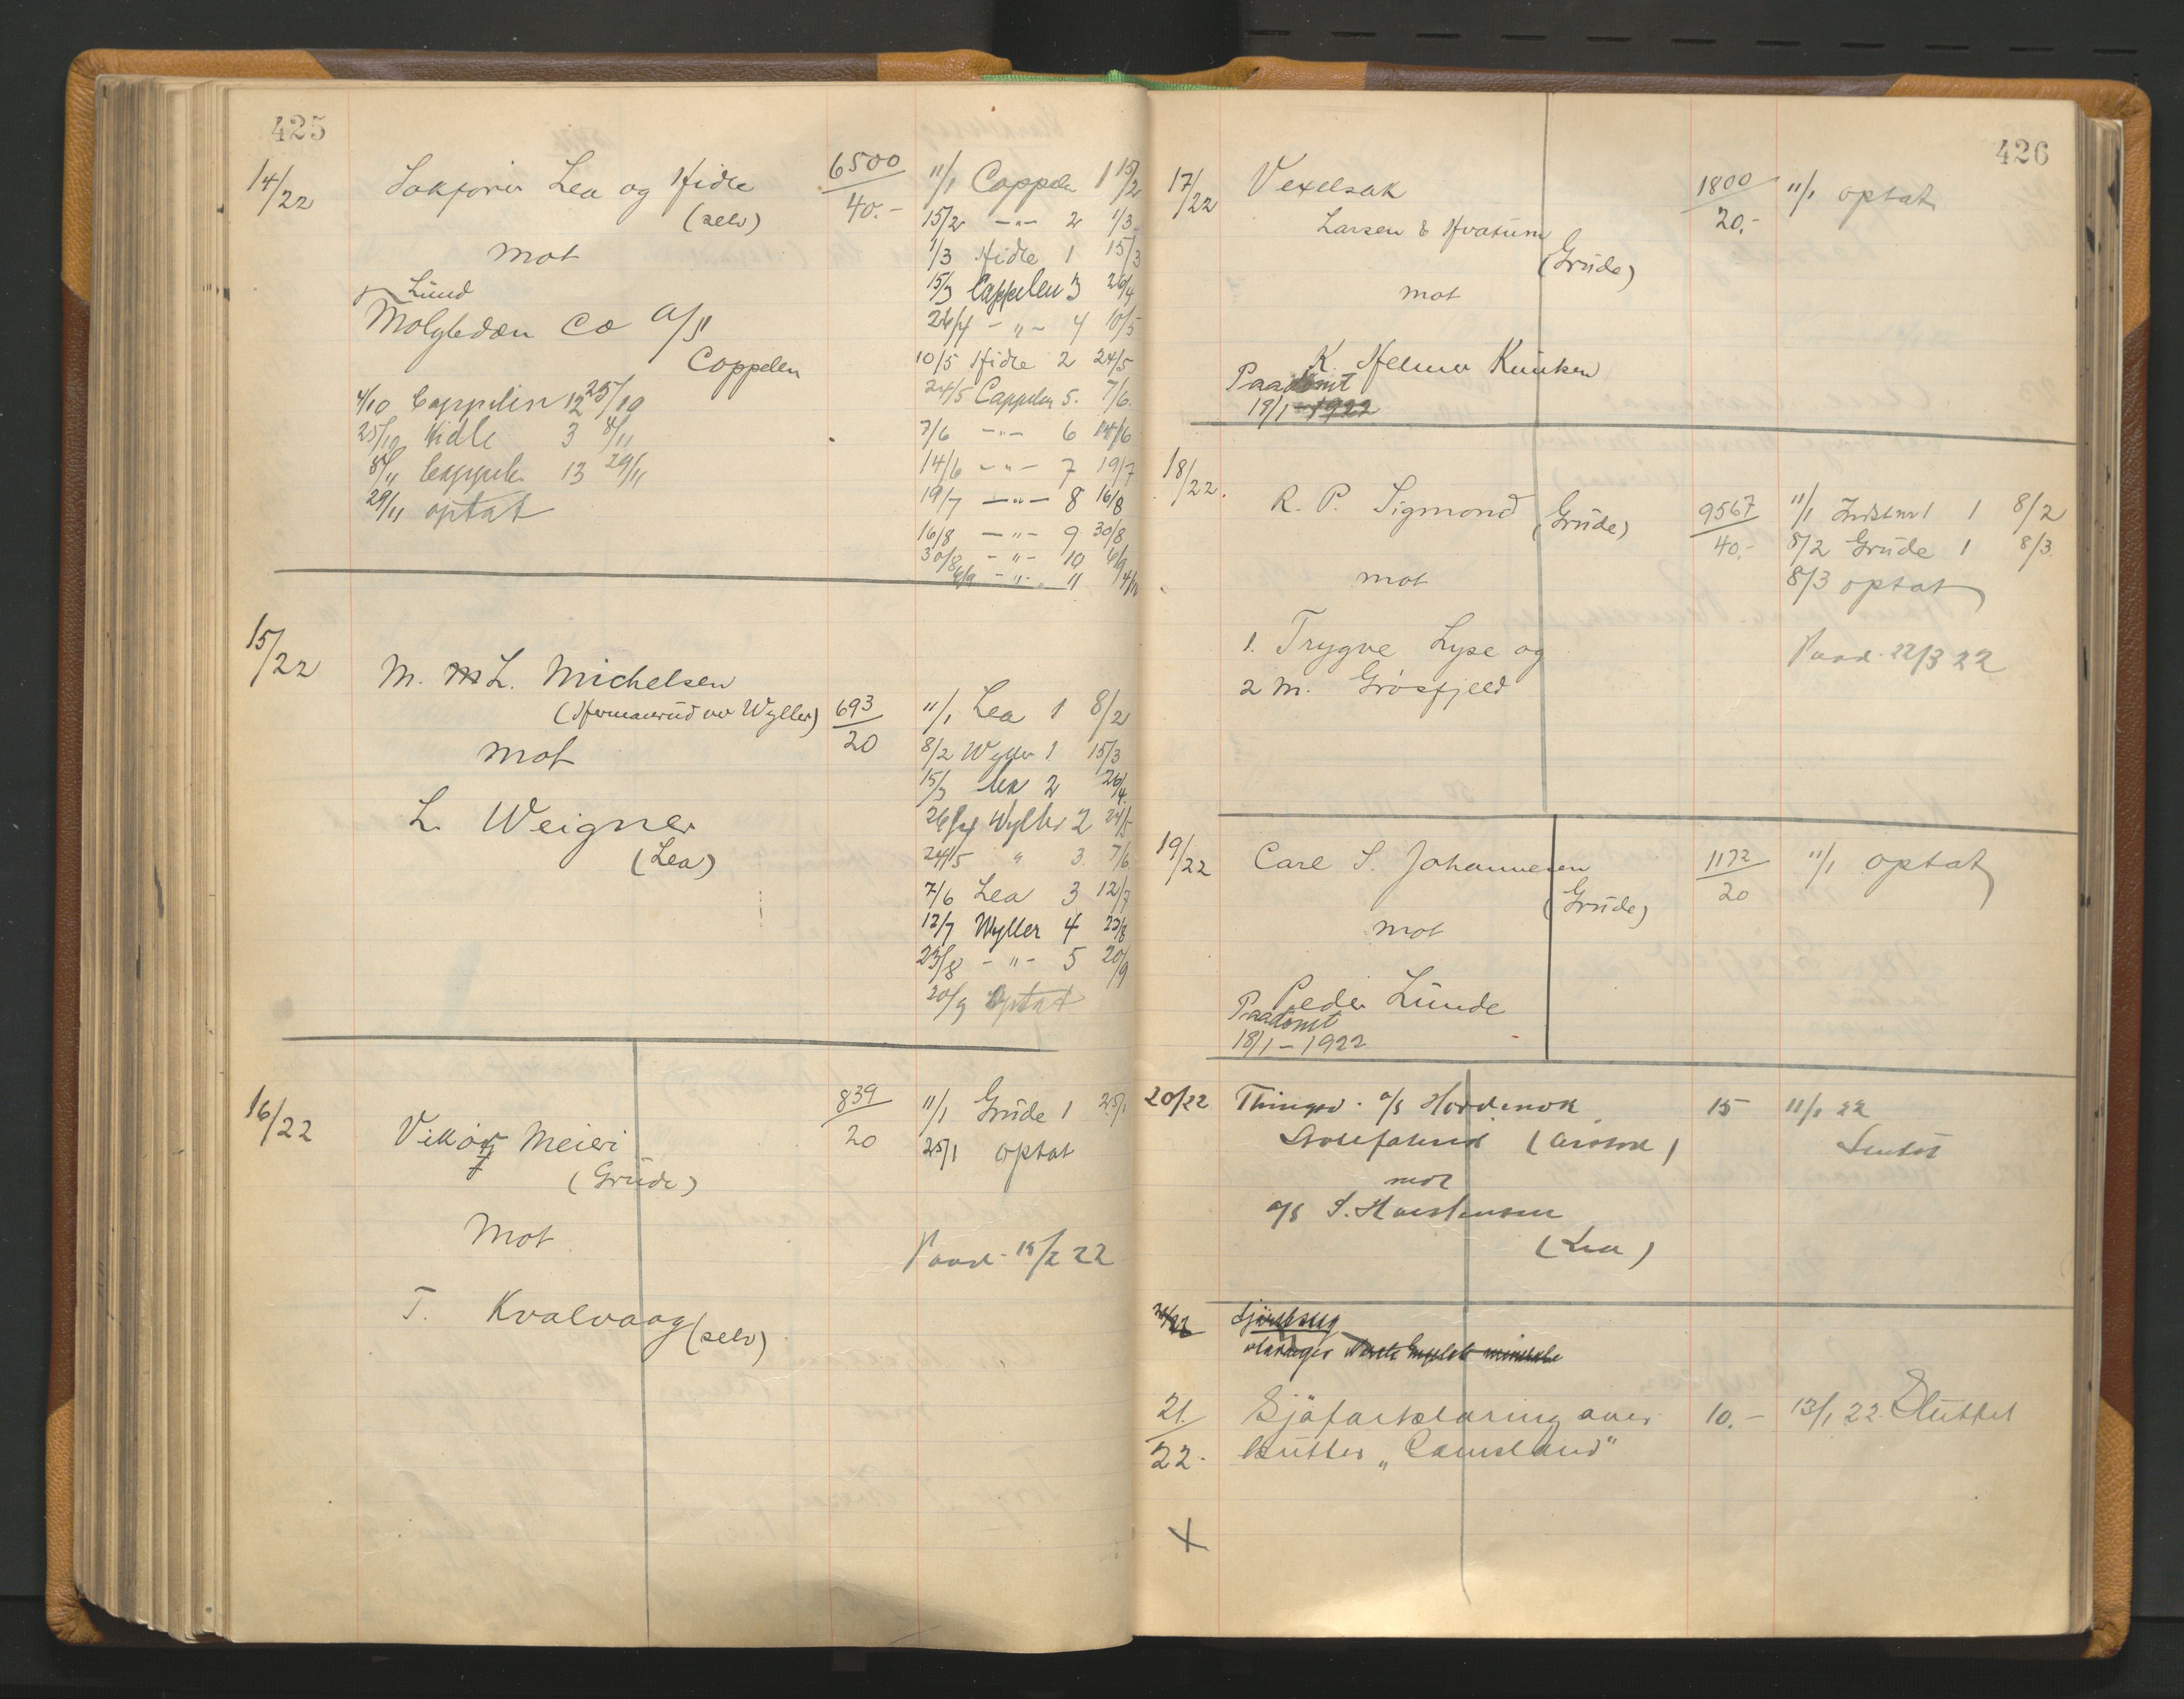 425
14/22 Sakfører Lea og Hidle 6500 11/1 Cappelen 1 15/2
(selv) 40.- 15/2 -"- 2 1/3
mot 1/3 Hidle 1 15/3
Lund 15/3 Cappelen 3 26/4
Molybdæn Co A/S 26/4 -"- 4 10/5
Cappelen 10/5 Hidle 2 24/5
4/10 Cappelen 12 25/10 24/5 Cappelen 5. 7/6
25/10 Hidle 3 8/11 7/6 -"- 6 14/6
8/11 Cappelen 13 29/11 14/6 -"- 7 19/7
29/11 optat 19/7 -"- 8 16/8
16/8 -"- 9 30/8
30/8 -"- 10 6/9
6/9 -"- 11 4/10
15/22 M. L. Michelsen
(Hermansrud ver Wyller) 693 11/1 Lea 1 8/2
mot 20 8/2 Wyller 1 15/3
15/3 Lea 2 26/4
L. Weigner 26/4 Wyller 2 24/5
(Lea) 24/5 " 3. 7/6
7/6 Lea 3 12/7
12/7 Wyller 4 23/8
23/8 -"- 5 20/9
20/9 Optat
16/22 839 11/1 Grude 1 25/1
Vikør Meieri 20 25/1 optat
(Grude)
Mot
Paad. 15/2 22
T. Kvalvaag (selv)
426
17/22 Vexelsak 1800 11/1 optat
Larsen & Hvatum 20.-
(Grude)
mot
K. Helmer Knutsen
Paadømt
19/1 - 1922
18/22. R. P. Sigmond (Grude) 9567 11/1 1 8/2
40.- 8/2 Grude 1 8/3.
mot 8/3 optat
1. Trygve Lyse og
2 M. Grøsfjeld Paad. 22/3 22
19/22 Carl S. Johannesen 1172 11/1 optat
(Grude) 20
mot
Peder Lunde
Paadømt
18/1 - 1922
20/22 Thingsv. a/s Hordenok 15 11/1 22
mot
a/s S. Haustensen
(Lea)
21/22
21. Sjøforklaring over 10.- 13/1 22 Sluttet
22. kutter „Camsland"
X